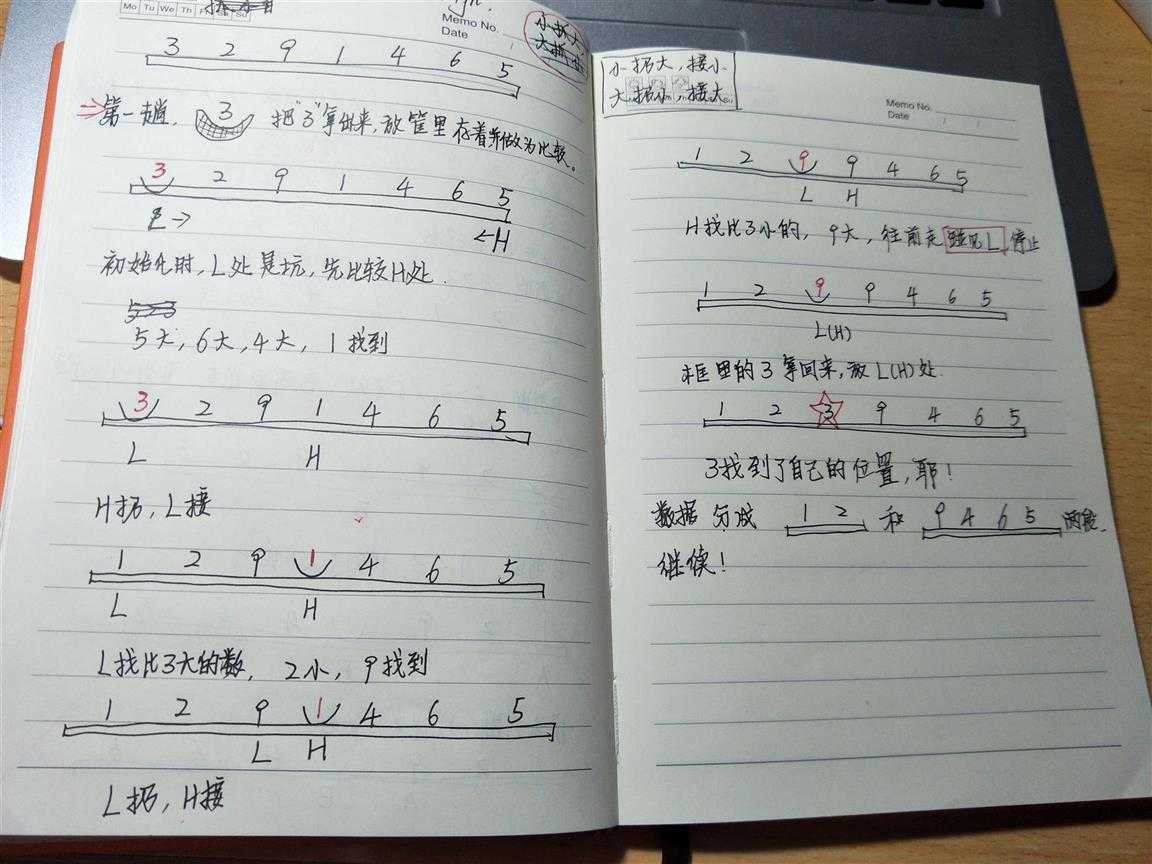 Mo Tu We Th Fr Sa Su
Memo No.
Date
小扔大,
3 2 9 1 4 6 5
第一趟, 3 把"3"拿出来,放筐里存着并做为比较。
3 2 9 1 4 6 5
L→ ←H
初始化时,L处是坑,先比较H处.
5大,6大,4大,1找到
3 2 9 1 4 6 5
L H
H扔,L接
1 2 9 1 4 6 5
L H
L找比3大的数, 2小, 9找到
1 2 9 1 4 6 5
L H
L扔,H接
小扔大,接小
大扔小,接大
Memo No.
Date
1 2 9 9 4 6 5
L H
H找比3小的, 9大,往前走碰见L,停止
1 2 9 9 4 6 5
L(H)
框里的3拿回来,放L(H)处.
1 2 3 9 4 6 5
3找到了自己的位置,耶!
数据分成 1 2 和 9 4 6 5 两段.
继续!